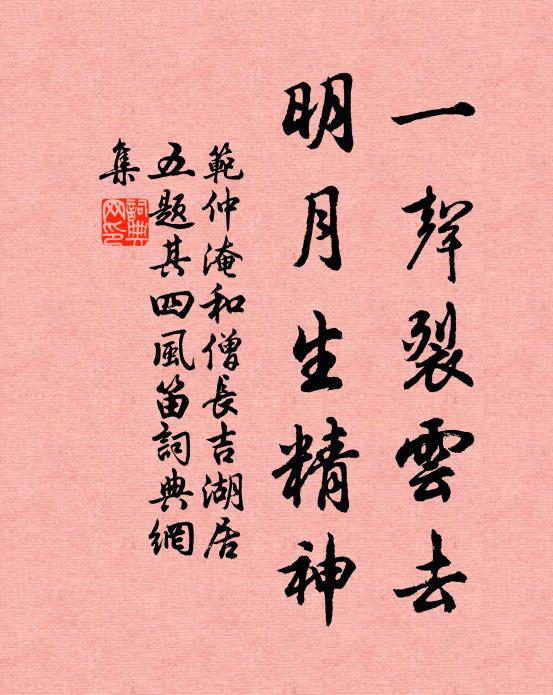 一聲裂雲去
明月生精神
範仲淹和僧長吉湖居
五題其四風笛詞典網
集
詞典
网印